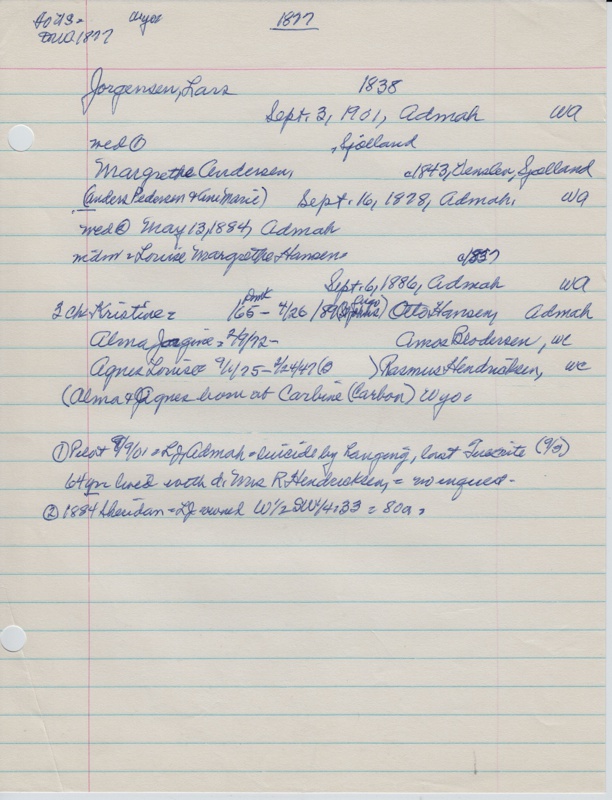 Wyo 1877
DWA 1877
Jorgensen, Lars 1838
Sept. 3, 1901, Admah WA
med ① , Sjolland
Margrethe Andersen, c1843, Sjolland
(Anders Pedersen & Ane Marie) Sept. 16, 1878, Admah, WA
med ② May 13, 1884, Admah
mdm = Louise Margrethe Hansen c/1837
Sept. 6, 1886, Admah WA
3 ch = Kristine = /65 - 4/26/89 Otto Hansen, Admah
Alma = 2/9/72 - Amos Brodersen, WC
Agnes Louise = 9/1/75 - 2/24/47 Rasmus Hendricksen, WC
(Alma & Agnes born at Carbine (Carbon) Wyo =
① Pilot 9/9/01 = LJ, Admah = suicide by hanging, last (9/3)
64 yrs lived with d. Mrs R. Hendricksen, = no inquest -
② 1884 Sheridan = LJ owned W 1/2 SW 1/4 33 = 80a =